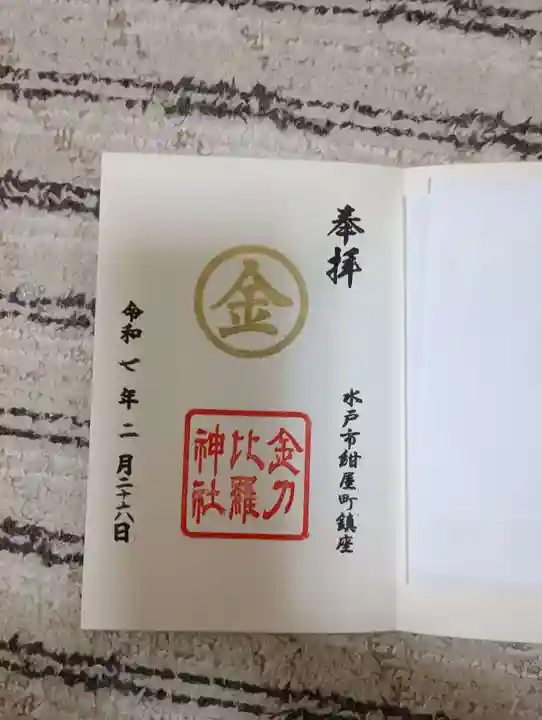 奉拝
水戸市紺屋町鎮座
金
金刀
比羅
神社
令和七年二月二十六日